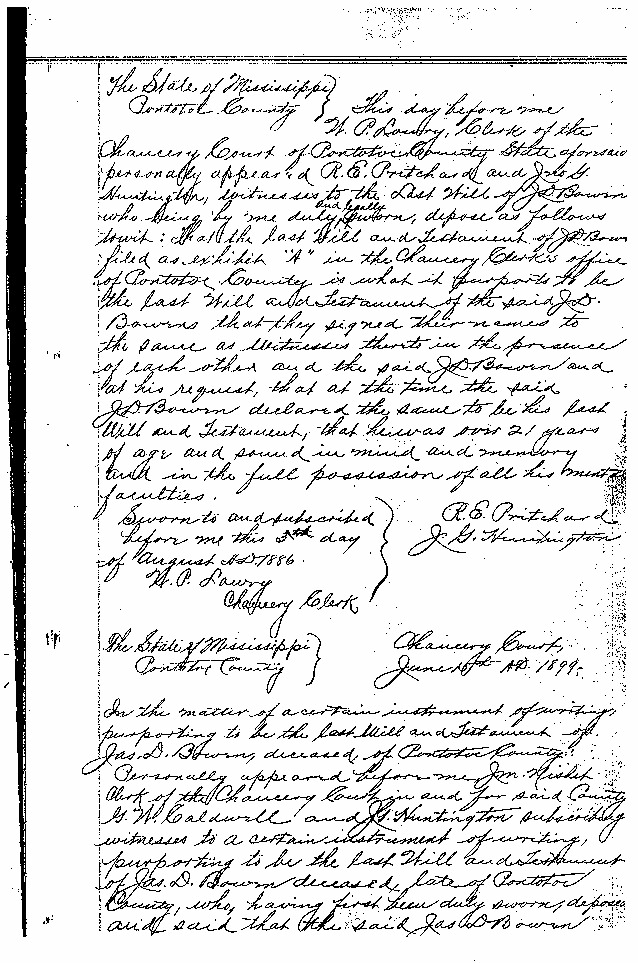 The State of Mississippi
Pontotoc County } This day before me
W. P. Lowry, Clerk of the
Chancery Court of Pontotoc County State aforesaid
personally appeared R. E. Pritchard and Jno. G.
Huntington, witnesses to the Last Will of J D Bowen
who being by me duly and legally sworn, depose as follows
towit: that the last Will and Testament of J D Bowen
filed as exhibit "A" in the Chancery Clerk's office
of Pontotoc County is what it purports to be
the last Will and Testament of the said J. D.
Bowens that they signed their names to
the same as Witnesses thereto in the presence
of each other and the said J D Bowen and
at his request, that at the time the said
J D Bowen declared the same to be his last
Will and Testament, that he was over 21 years
of age and sound in mind and memory
and in the full possession of all his mental
faculties.
Sworn to and subscribed } R. E. Pritchard
before me this 5th day J. G. Huntington
of August AD 1886.
W. P. Lowry
Chancery Clerk
The State of Mississippi } Chancery Court,
Pontotoc County June AD. 1899.
In the matter of a certain instrument of writing,
purporting to be the last Will and Testament of
Jas. D. Bowen, deceased, of Pontotoc County:
Personally appeared before me, J. M. Nisbet
Clerk of the Chancery Court in and for said County
G. W. Caldwell and J. G. Huntington subscribing
witnesses to a certain instrument of writing,
purporting to be the last Will and Testament
of Jas. D. Bowen deceased, late of Pontotoc
County, who, having first been duly sworn, deposed
and said that the said Jas D Bowen